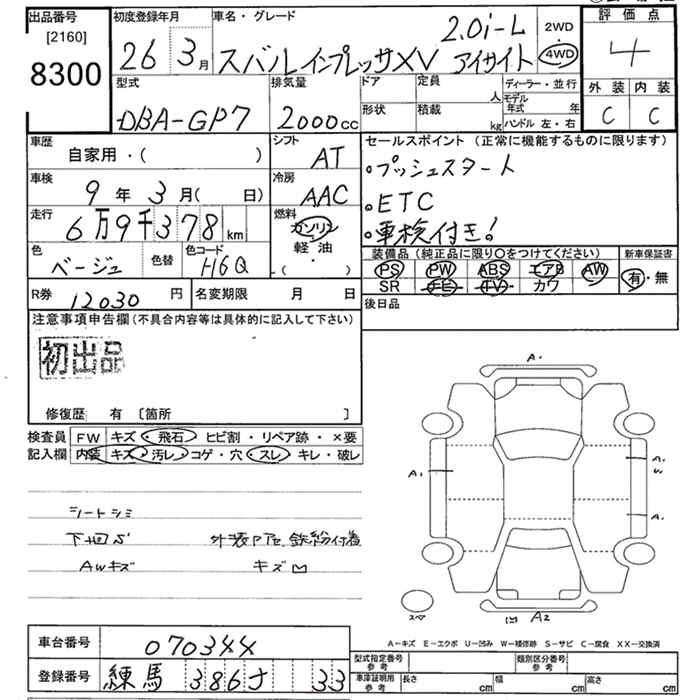 出品番号 初度登録年月 車名・グレード 2.0i-L 2WD 評価点
[2160] 26 3月 スバルインプレッサXV アイサイト 4WD 4
8300
型式 排気量 ドア 定員 人 ディーラー・並行 外装 内装
DBA-GP7 2000cc 形状 積載 kg モデル年式 年 ハンドル 左・右 C C
車歴 自家用・( ) シフト AT セールスポイント (正常に機能するものに限ります)
車検 9年 3月( 日) 冷房 AAC
。プッシュスタート
。ETC
。車検付き!
走行 6万9千378km 燃料 ガソリン 軽油 ・( )
色 ベージュ 色替 色コード H6Q
装備品 (純正品に限り○をつけてください) 新車保証書
PS PW ABS エアB AW 有・無
SR TV カワ
R券 12030円 名変期限 月 日 後日品
注意事項申告欄(不具合内容等は具体的に記入して下さい)
初出品
修復歴 有 〔箇所 〕
検査員 FW キズ・飛石・ヒビ割・リペア跡・×要
記入欄 内装 キズ・汚レ・コゲ・穴・スレ・キレ・破レ
シートシミ
下回S 鉄粉付着
AWキズ キズ
A1
A1
A1
W
A1
スペア A2
A-キズ E-エクボ U-凹み W-補修跡 S-サビ C-腐食 XX-交換済
車台番号 070344
登録番号 練馬 386 す 33
型式指定番号 参考 類別区分番号 参考
車庫証明用 参考 長さ cm 幅 cm 高さ cm